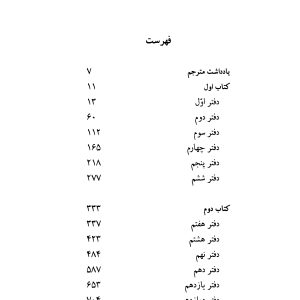 فهرست
یادداشت مترجم ۷
کتاب اول ۱۱
دفتر اوّل ۱۳
دفتر دوم ۶۰
دفتر سوم ۱۱۲
دفتر چهارم ۱۶۵
دفتر پنجم ۲۱۸
دفتر ششم ۲۷۷
کتاب دوم ۳۳۳
دفتر هفتم ۳۳۷
دفتر هشتم ۴۲۳
دفتر نهم ۴۸۴
دفتر دهم ۵۸۷
دفتر یازدهم ۶۵۳